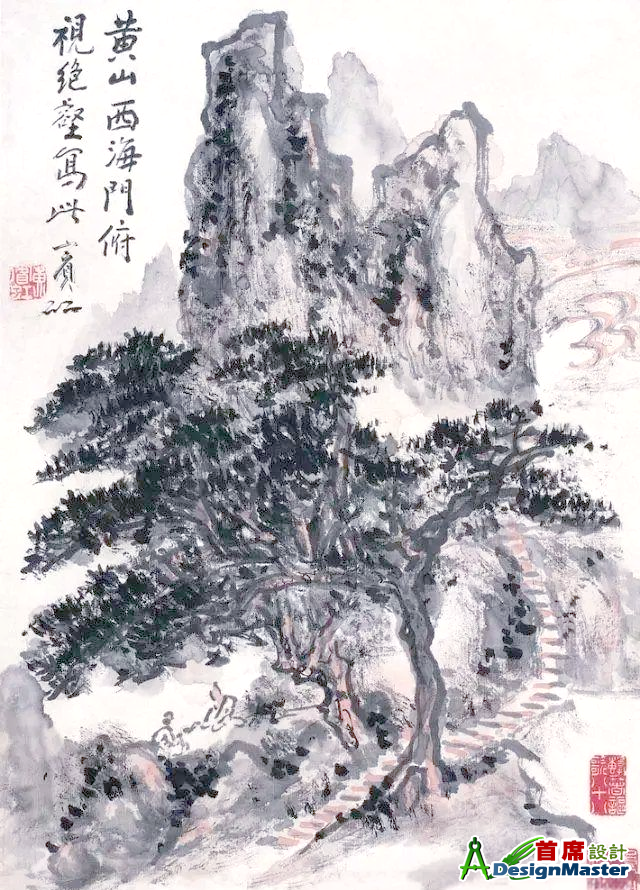 黄山西海門俯
視絶壑寫此 賓虹
黄賓虹
首席設計
DesignMaster